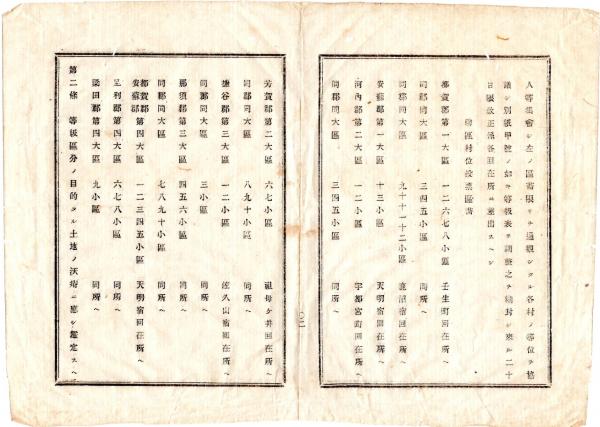 人等集會シ左ノ區畫限リテ通觀シタル各村ノ等位ヲ協
議シ別紙甲號ノ如キ等級表ヲ調整之ヲ緘封シ來ル二十
日限改正派各回在所ニ差出スヘシ
等區村位投票區畫
都賀郡第一大區 一二六七八小區 壬生町回在所ヘ
同郡同大區 三四五小區 同所ヘ
同郡同大區 九十十一十二小區 鹿沼宿回在所ヘ
安蘇郡第一大區 十三小區 天明宿回在所ヘ
河內郡第二大區 一二小區 宇都宮町回在所ヘ
同郡同大區 三四五小區 同所ヘ
芳賀郡第二大區 六七小區 祖母ケ井回在所ヘ
同郡同大區 八九十小區 同所ヘ
鹽谷郡第三大區 一二小區 佐久山宿回在所ヘ
同郡同大區 三小區 同所ヘ
那須郡第三大區 四五六小區 同所ヘ
同郡同大區 七八九十小區 同所ヘ
都賀郡安蘇郡第四大區 一二三四五小區 天明宿回在所ヘ
足利郡第四大區 六七八小區 同所ヘ
梁田郡第四大區 九小區 同所ヘ
第二條 等級區分ノ目的タル土地ノ沃瘠ニ應シ鑑定スヘ